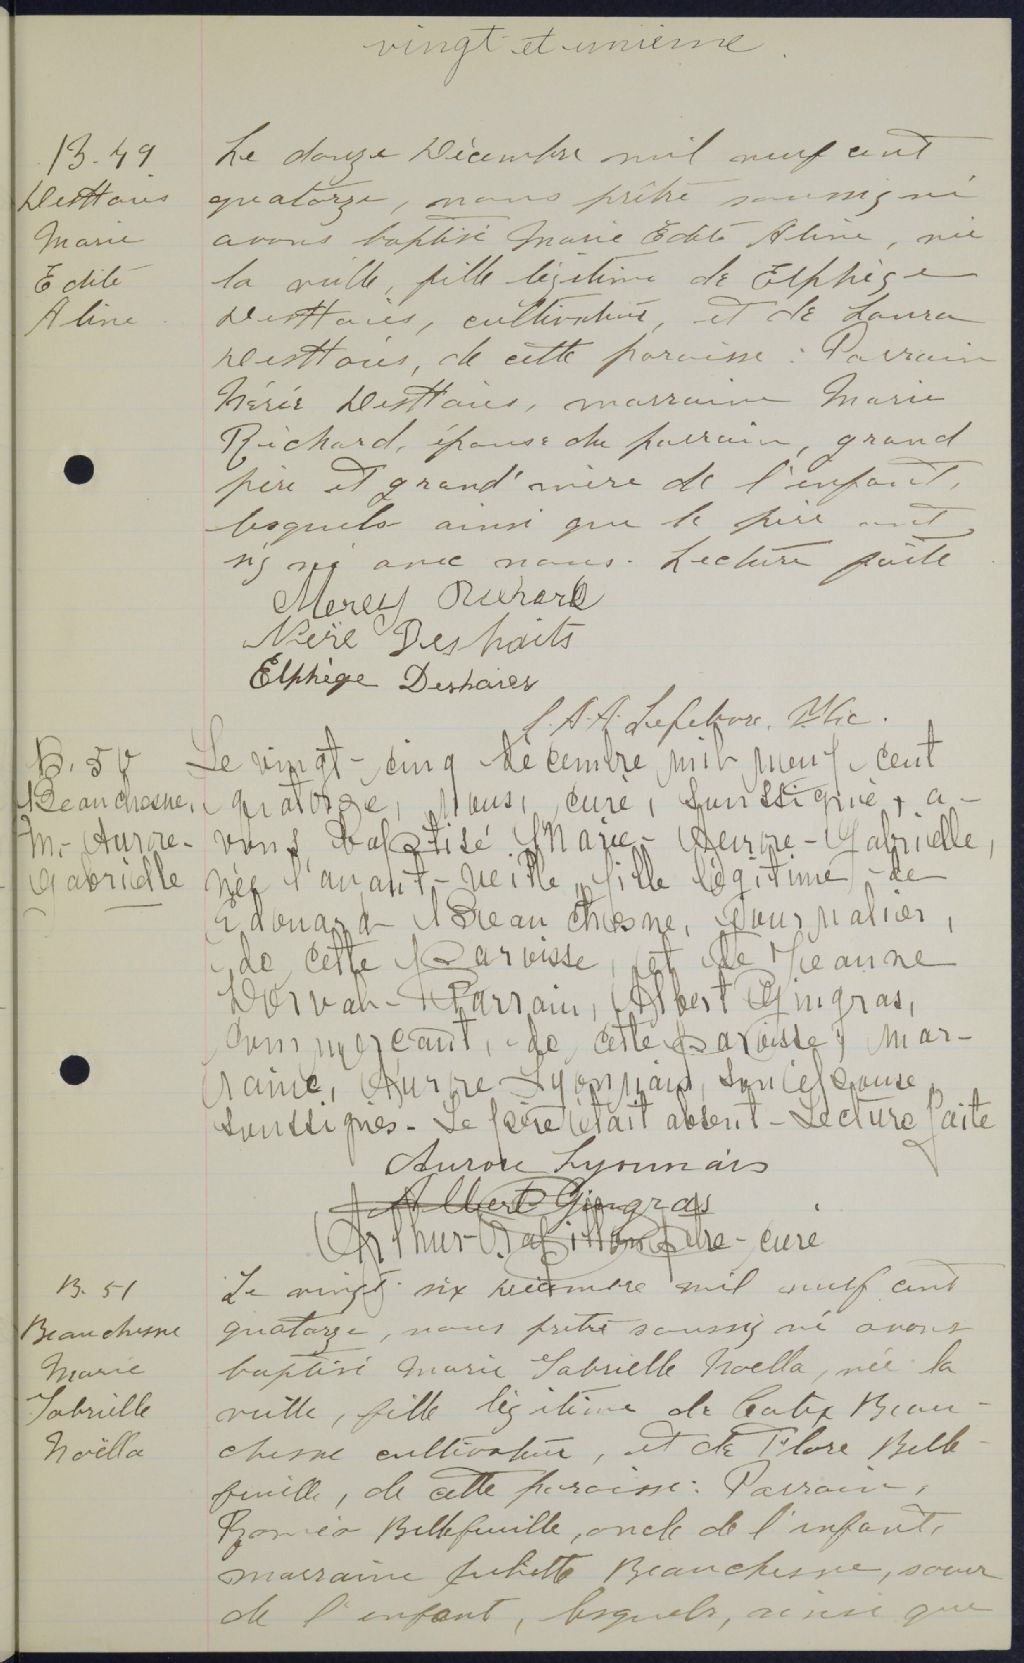 vingt et unieme
B. 49
DesHaies
Marie
Edite
Aline
Le douze Décembre mil neuf cent
quatorze, nous prêtre soussigné
avons baptisé Marie Edite Aline, née
la veille, fille légitime de Elphège
DesHaies, cultivateur, et de Laura
DesHaies, de cette paroisse : Parrain
Nérée DesHaies, marraine Marie
Richard, épouse du parrain, grand
père et grand'mère de l'enfant,
lesquels ainsi que le père ont
signé avec nous. Lecture faite
Richard
Nérè Deshaits
Elphège Deshaies
A. A. Lefebvre. Vic.
B. 50
Beauchesne,
M.- Aurore-
Gabrielle
Le vingt-cinq décembre mil neuf cent
quatorze, nous, curé, soussigné, a-
vons baptisé Marie-Aurore-Gabrielle,
née l'avant-veille, fille légitime de
Edouard Beauchesne, journalier,
de cette Paroisse, et de Jeanne
Dorval- Parrain, Albert Gingras,
commerçant, de cette paroisse; mar-
raine, Aurore Lyonnais, son épouse,
soussignés - Le père était absent - Lecture faite
Aurore Lyonnais
Albert Gingras
Arthur Papillon ptre-curé
B. 51
Beauchesne
Marie
Gabrielle
Noëlla
Le vingt-six décembre mil neuf cent
quatorze, nous prêtre soussigné avons
baptisé Marie Gabrielle Noella, née la
veille, fille légitime de Calix Beau-
chesne cultivateur, et de Flore Belle-
feuille, de cette paroisse: Parrain,
Roméo Bellefeuille, oncle de l'enfant,
marraine Juliette Beauchesne, soeur
de l'enfant, lesquels, ainsi que